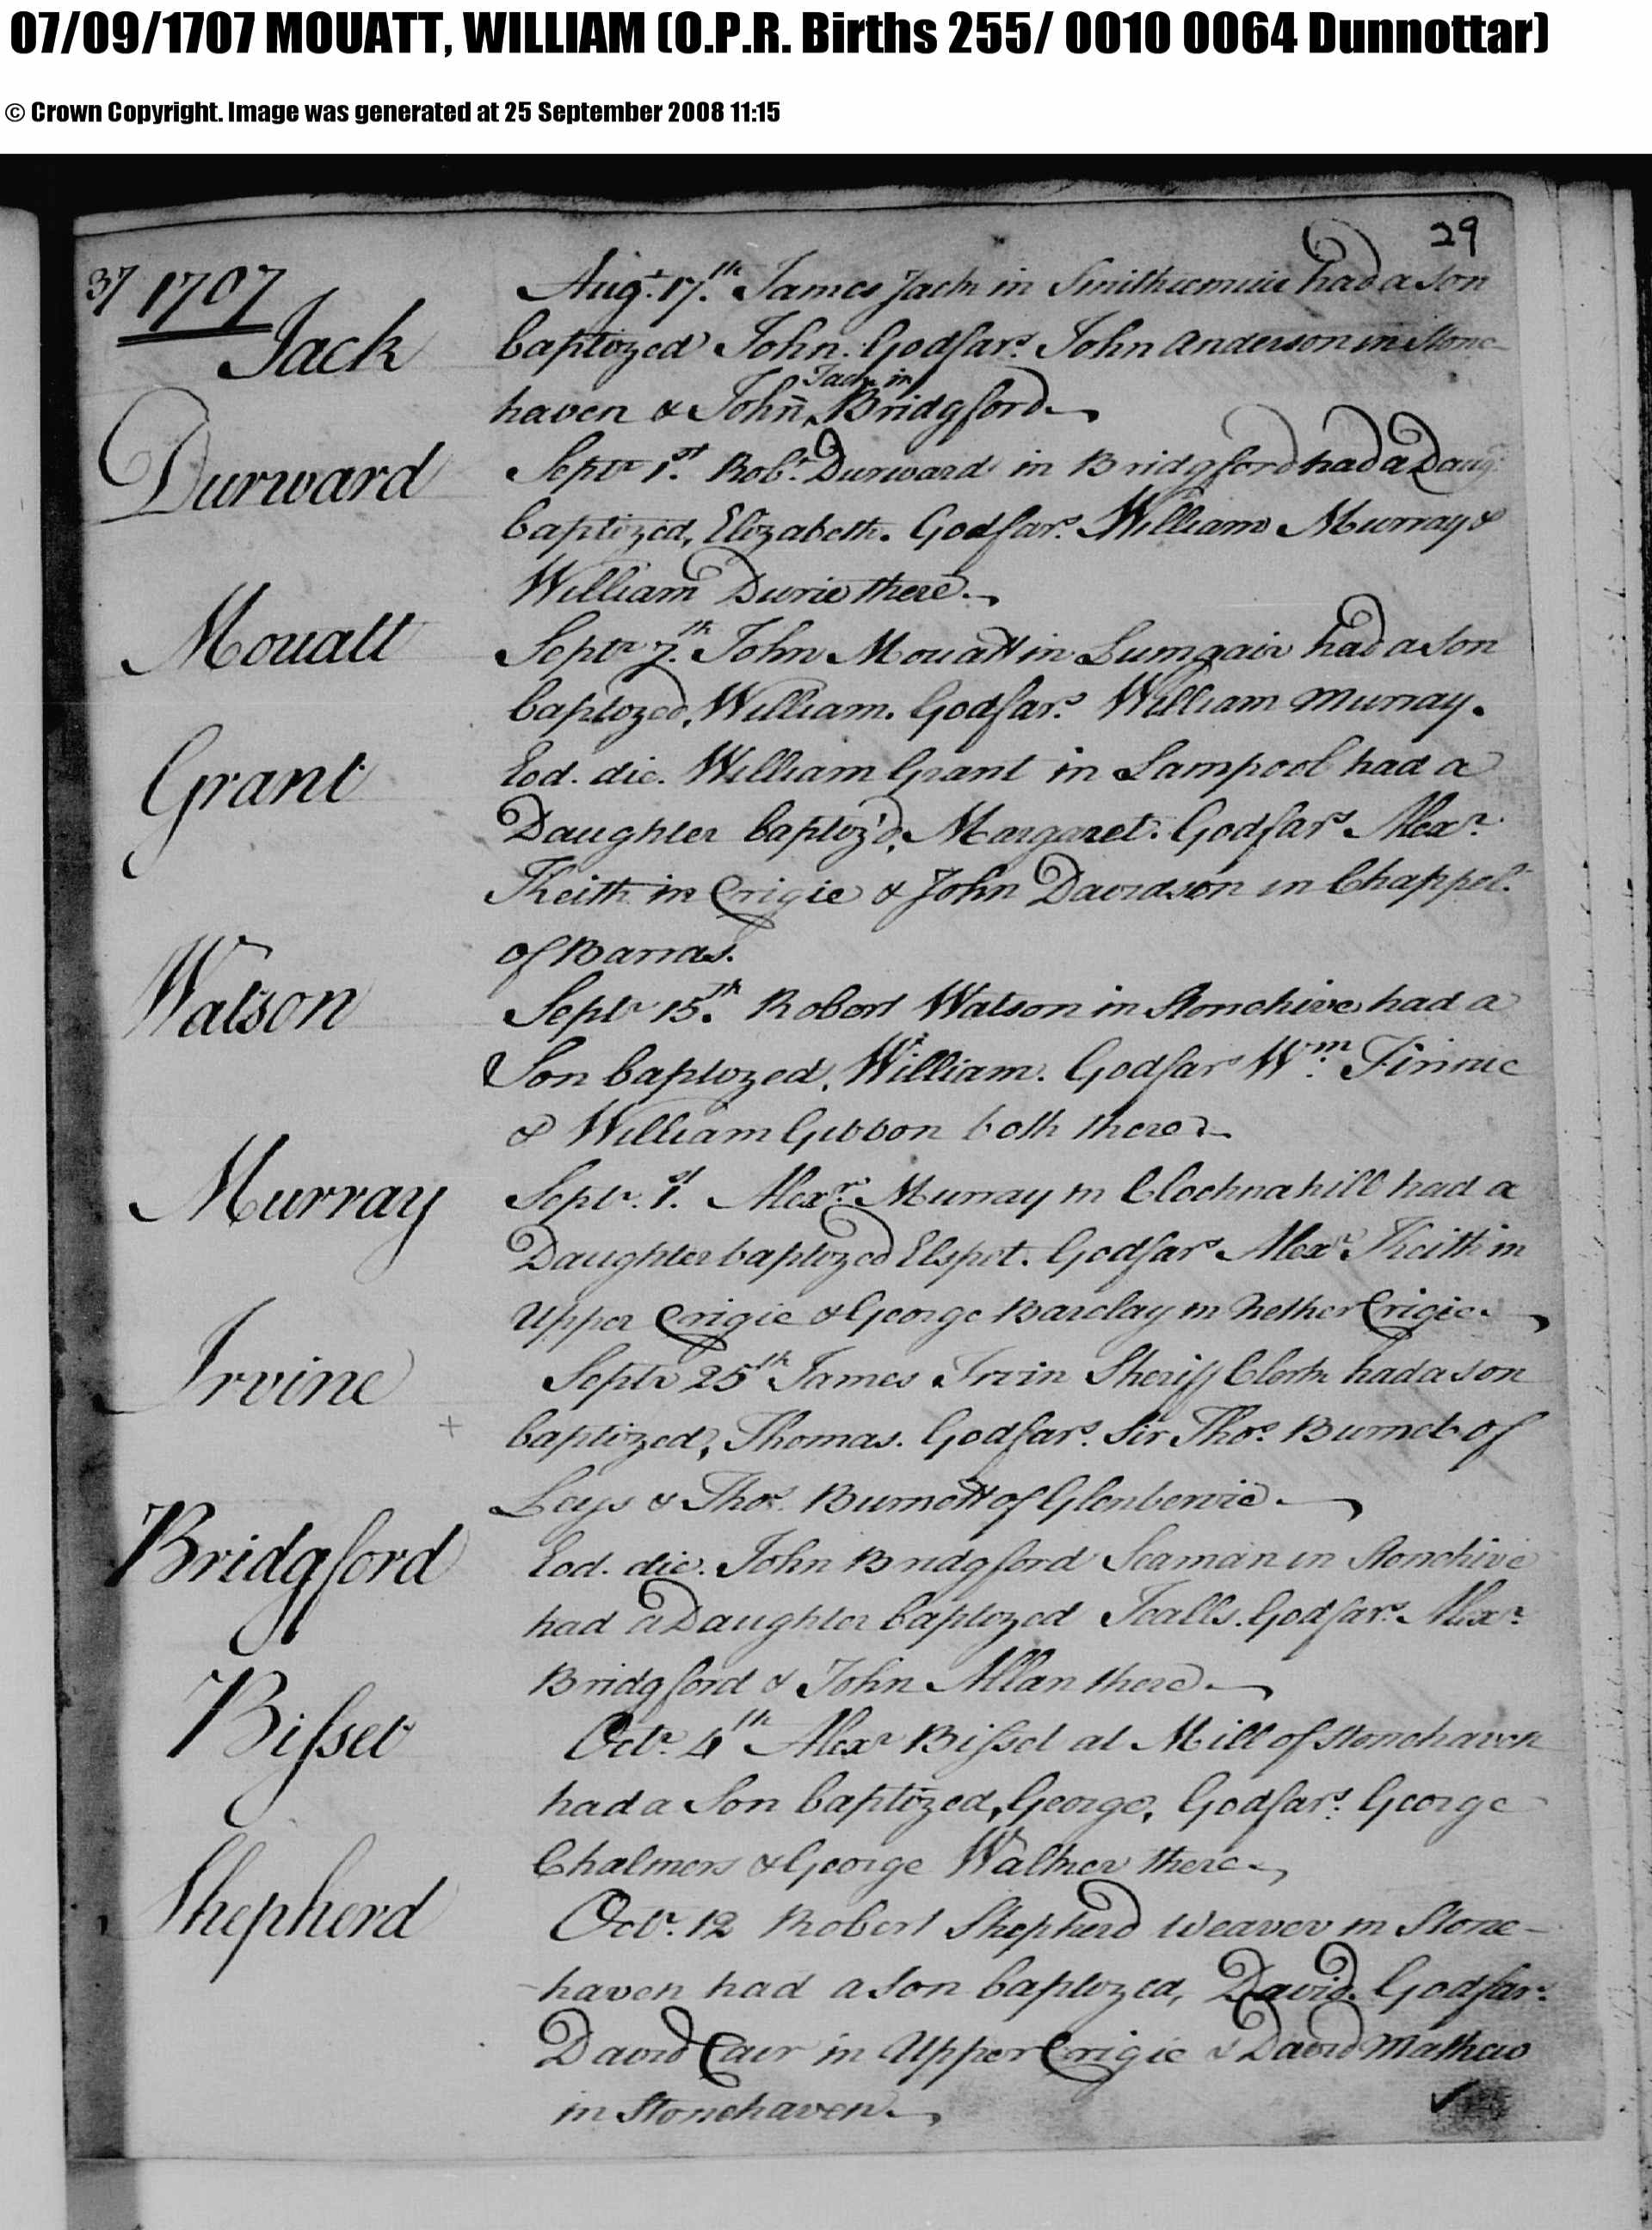 07/09/1707 MOUATT, WILLIAM (O.P.R. Births 255/ 0010 0064 Dunnottar)
© Crown Copyright. Image was generated at 25 September 2008 11:15
29
37 1707
Jack
Augt. 17th. James Jack in had a Son
baptized John. Godfars. John Anderson in Stone-
Jack in
haven & John Bridgford.
Durward
Septr 1st. Robt. Durward in Bridgford had a Daug:
baptized, Elizabeth. Godfars. William Murray &
William Durie there.
Mouatt
Septr 7th. John Mouatt in Lumgair had a Son
baptized, William. Godfars. William Murray.
Grant
Eod. die. William Grant in Lampool had a
Daughter baptiz'd, Margaret. Godfars Alexr.
Keith in Crigie & John Davidson in Chappel.
of Barras.
Watson
Septr 15th. Robert Watson in Stonehive had a
Son baptized, William. Godfars Wm. Finnie
& William Gibbon both there.
Murray
Septr. 1st. Alexr. Murray in Clochnahill had a
Daughter baptized Elspet. Godfars Alexr Keith in
Upper Crigie & George Barclay in Nether Crigie.
Irvine
Septr 25th James Irvin Sheriff Clerk had a Son
+ baptized, Thomas. Godfars. Sir Thos. Burnet of
Leys & Thos. Burnett of Glenbervie.
Bridgford
Eod. die. John Bridgford Seaman in Stonehive
had a Daughter baptized Godfars. Alexr.
Bridgford & John Allan there.
Bisset
Octr. 4th Alexr Bisset at Mill of Stonehaven
had a Son baptized, George, Godfars. George
Chalmers & George Walker there.
Shepherd
Octr. 12 Robert Shepherd Weaver in Stone-
-haven had a Son baptized, David. Godfars.
David Cair in Upper Crigie & David Mathew
in Stonehaven.